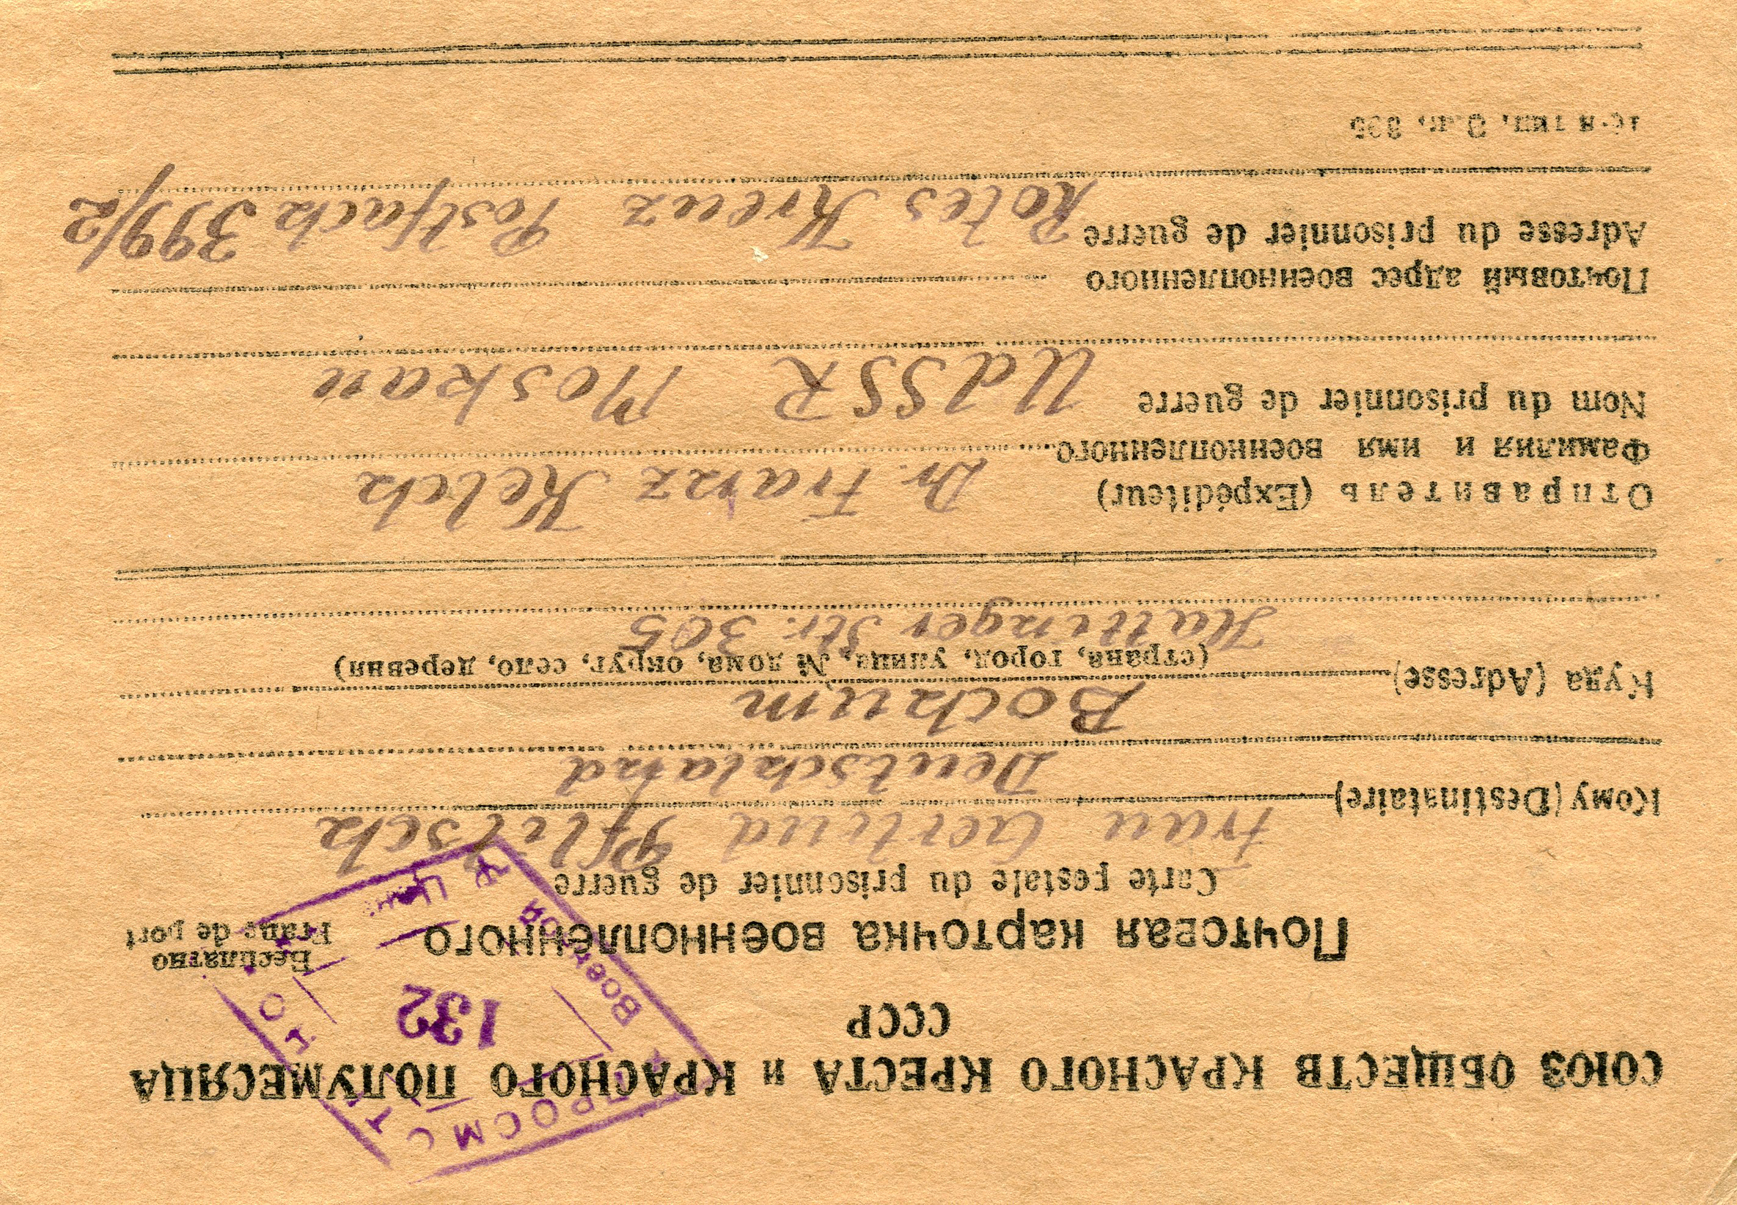 СОЮЗ ОБЩЕСТВ КРАСНОГО КРЕСТА и КРАСНОГО ПОЛУМЕСЯЦА
СССР
Почтовая карточка военнопленного
Бесплатно
Franc de port
Carte postale du prisonnier de guerre
ПРОСМОТРЕНО
Военной Ценз
132
Кому (Destinataire) Frau Gertrud Pflitsch
Deutschland
Bochum
Куда (Adresse)
(страна, город, улица, № дома, округ, село, деревня)
Hattinger Str. 305
Отправитель (Expéditeur)
Фамилия и имя военнопленного Dr. Franz Kelch
Nom du prisonnier de guerre
UdSSR Moskau
Почтовый адрес военнопленного
Adresse du prisonnier de guerre Rotes Kreuz Postfach 399/2
16-я тип. З.п. 895